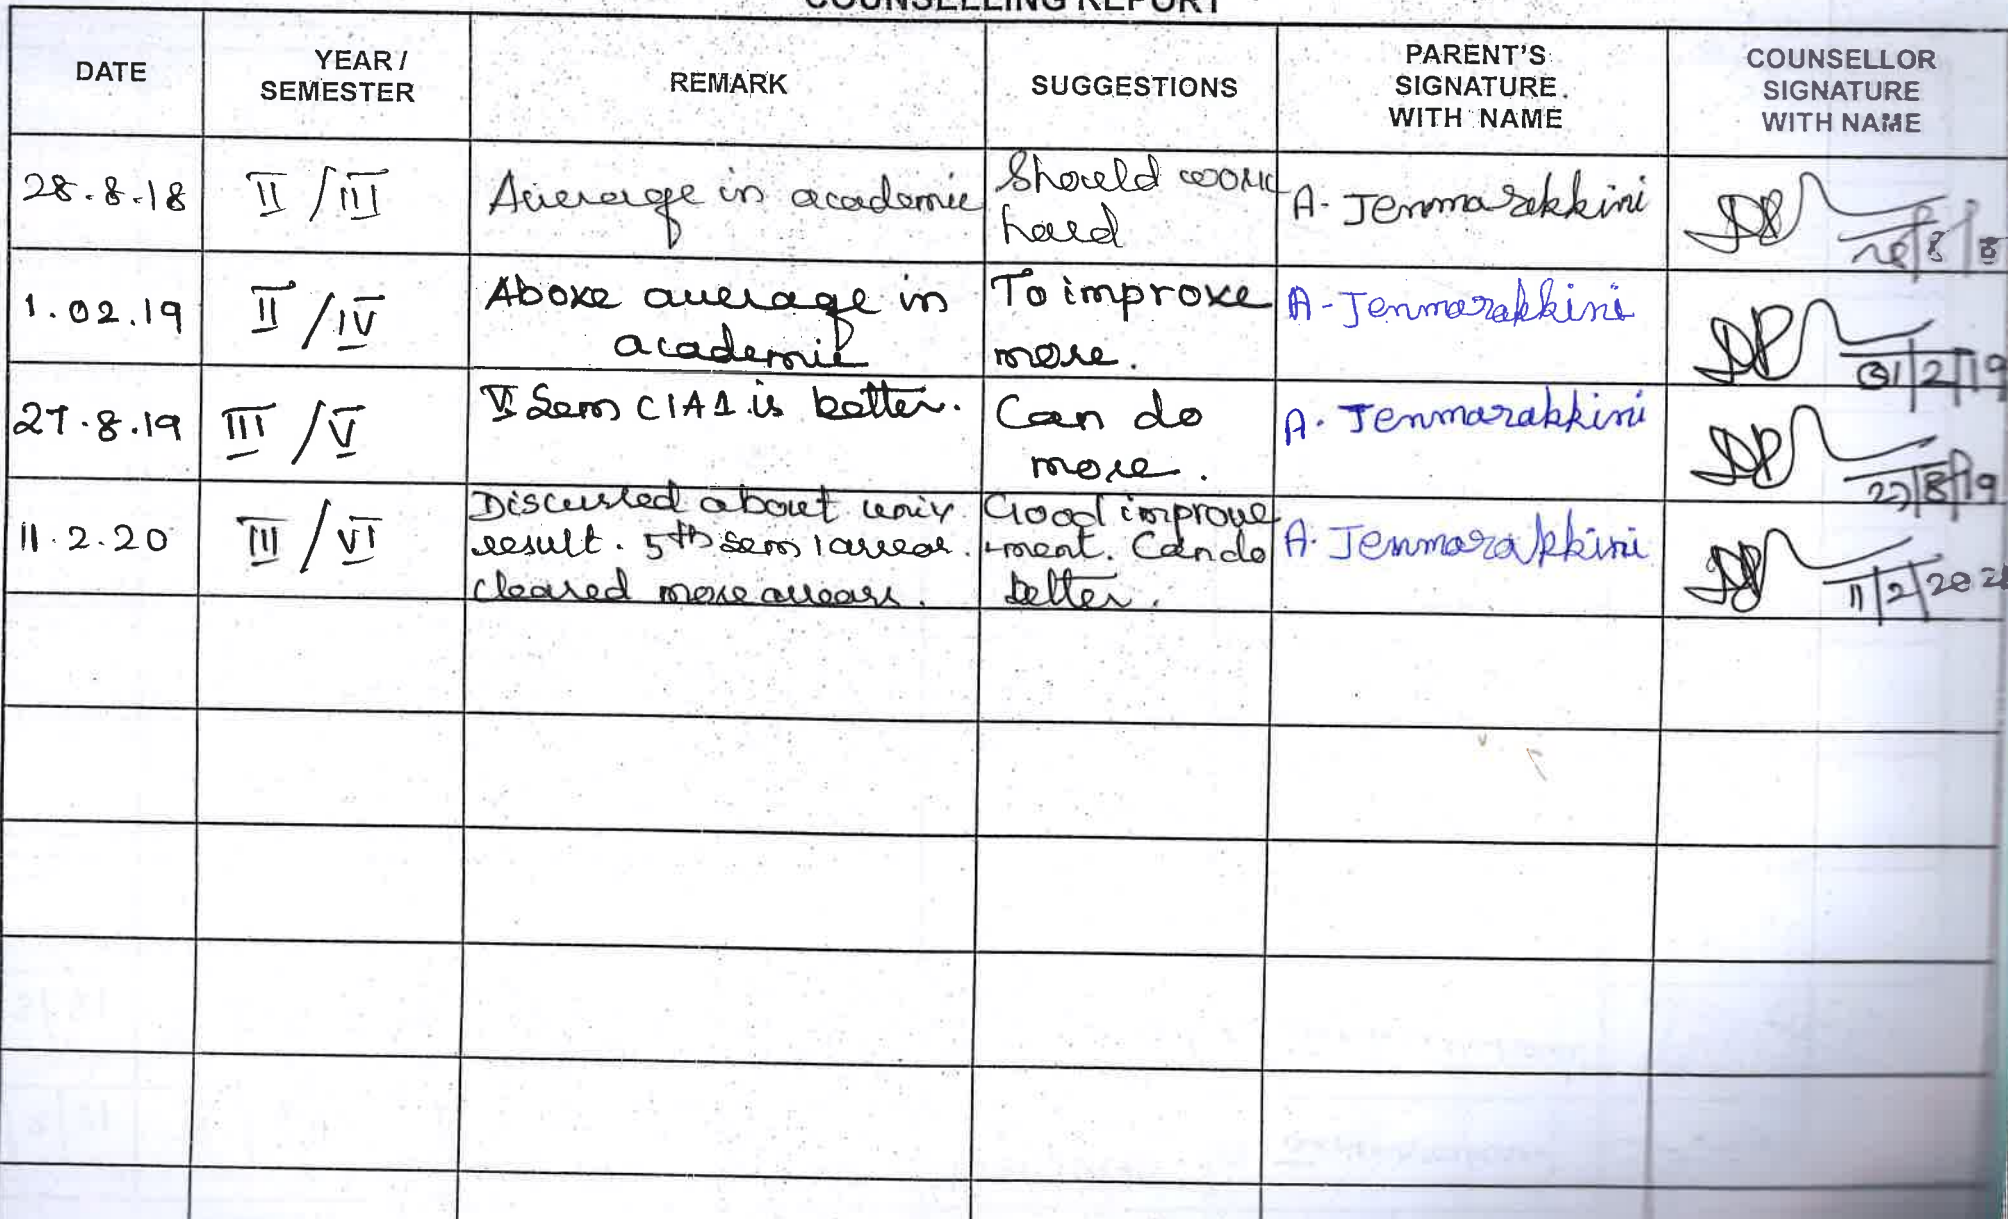 COUNSELLING REPORT
DATE
YEAR /
SEMESTER
REMARK
SUGGESTIONS
PARENT'S
SIGNATURE.
WITH NAME
COUNSELLOR
SIGNATURE
WITH NAME
28.8.18
II / III
Average in academic
Should work
hard
A. Jenmarakkini
1.02.19
II / IV
Above average in
academic
To improve
more.
A. Jenmarakkini
01/2/19
27.8.19
III / V
V Sem CIA1 is better.
Can do
more.
A. Jenmarakkini
27/8/19
11.2.20
III / VI
Discussed about univ
result. 5th sem 1 arrear.
cleared more arrears.
Good improve
-ment. Can do
better.
A. Jenmarakkini
11/2/202